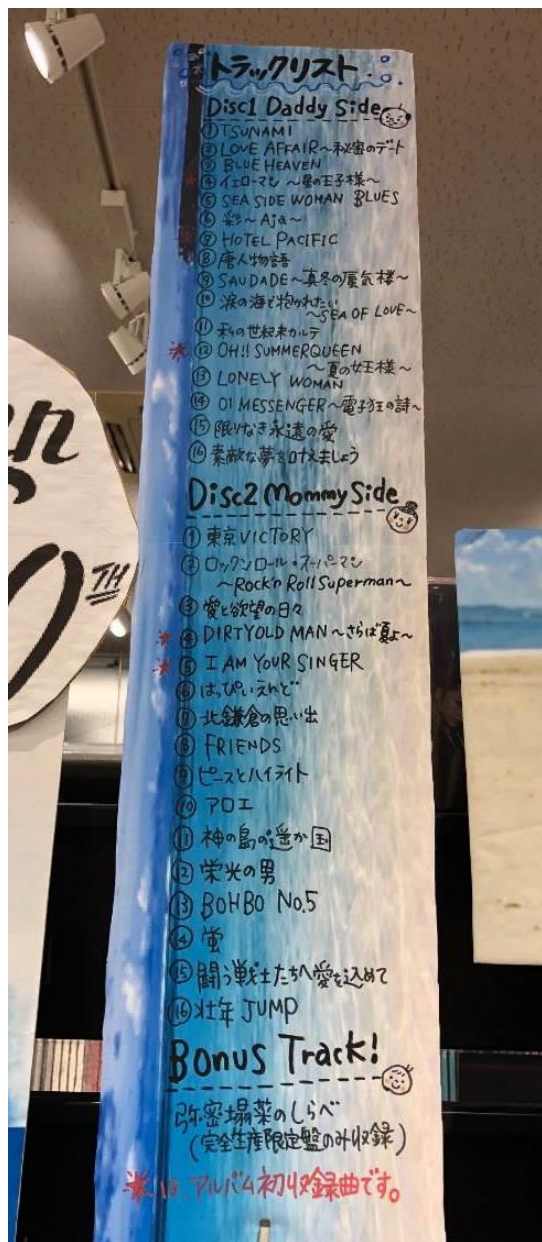 トラックリスト
Disc1 Daddy Side
①TSUNAMI
②LOVE AFFAIR～秘密のデート
③BLUE HEAVEN
④イエローマン ～星の王子様～
⑤SEA SIDE WOMAN BLUES
⑥彩～Aja～
⑦HOTEL PACIFIC
⑧唐人物語
⑨SAUDADE～真冬の蜃気楼～
⑩涙の海で抱かれたい
～SEA OF LOVE～
⑪私の世紀末カルテ
※⑫OH!! SUMMERQUEEN
～夏の女王様～
⑬LONELY WOMAN
⑭01 MESSENGER～電子狂の詩～
⑮限りなき永遠の愛
⑯素敵な夢を叶えましょう
Disc2 Mommy Side
①東京VICTORY
②ロックンロール・スーパーマン
～Rock'n Roll Superman～
③愛と欲望の日々
※④DIRTY OLD MAN～さらば夏よ～
※⑤I AM YOUR SINGER
⑥はっぴいえんど
⑦北鎌倉の思い出
⑧FRIENDS
⑨ピースとハイライト
⑩アロエ
⑪神の島の遥か国
⑫栄光の男
⑬BOHBO No.5
⑭蛍
⑮闘う戦士たちへ愛を込めて
⑯壮年JUMP
Bonus Track!
弥蜜塌菜のしらべ
(完全生産限定盤のみ収録)
※は、アルバム初収録曲です。
TH